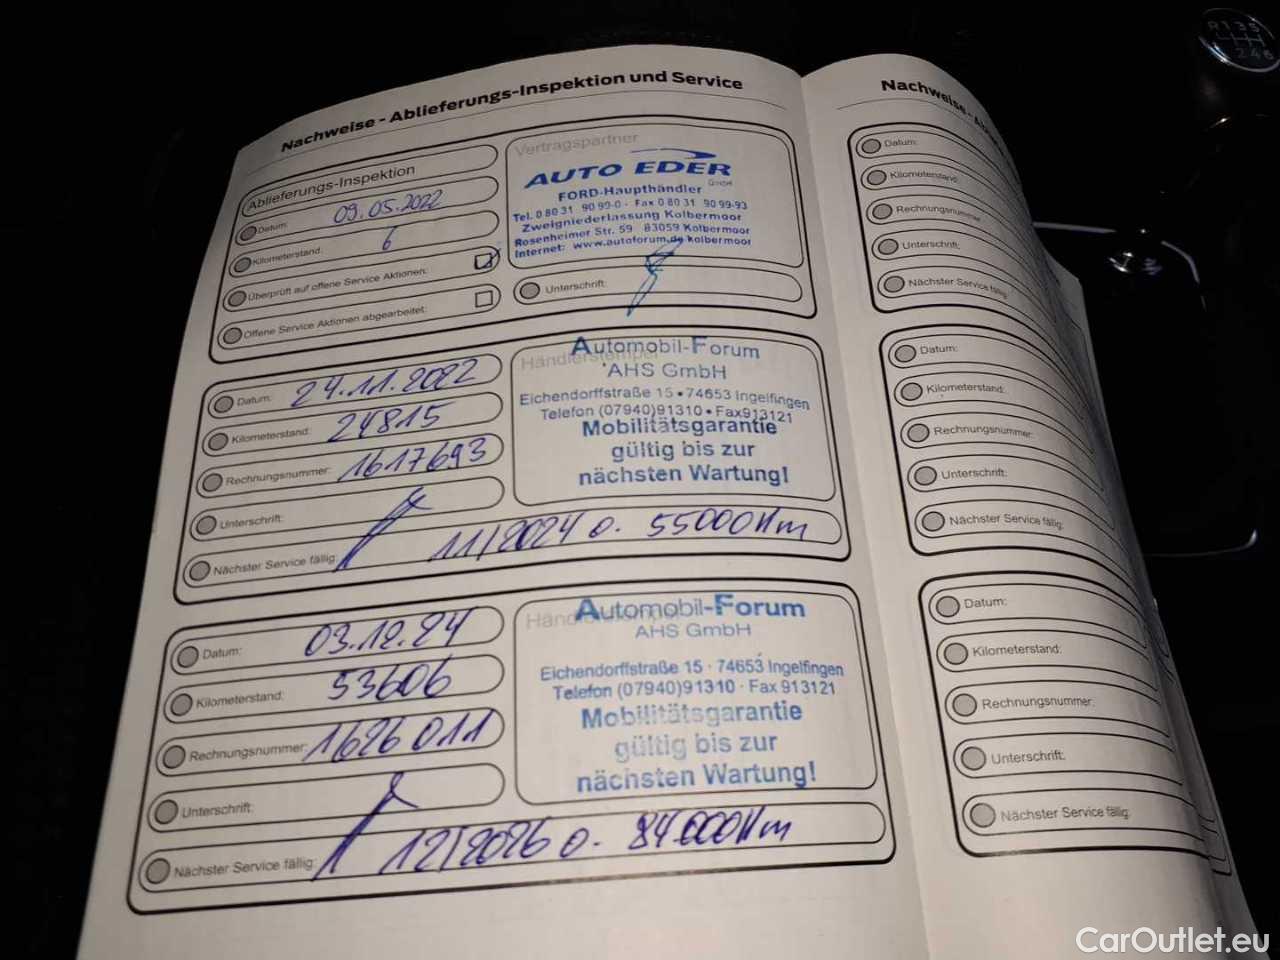 Nachweise - Ablieferungs-Inspektion und Service
Ablieferungs-Inspektion
Datum: 09.05.2022
Kilometerstand: 6
Überprüft auf offene Service Aktionen:
Offene Service Aktionen abgearbeitet:
Vertragspartner
AUTO EDER
GmbH
FORD-Haupthändler
Tel. 0 80 31 90 99-0 - Fax 0 80 31 90 99-93
Zweigniederlassung Kolbermoor
Rosenheimer Str. 59 83059 Kolbermoor
Internet: www.autoforum.de/kolbermoor
Unterschrift:
Datum: 24.11.2022
Kilometerstand: 24815
Rechnungsnummer: 1617693
Unterschrift:
Nächster Service fällig: 11/2024 o. 55000 Km
Händlerstempel
Automobil-Forum
AHS GmbH
Eichendorffstraße 15 • 74653 Ingelfingen
Telefon (07940)91310 • Fax 913121
Mobilitätsgarantie
gültig bis zur
nächsten Wartung!
Datum: 03.12.24
Kilometerstand: 53606
Rechnungsnummer: 1626011
Unterschrift:
Nächster Service fällig: 12/2026 o. 84.000 Km
Händlerstempel
Automobil-Forum
AHS GmbH
Eichendorffstraße 15 · 74653 Ingelfingen
Telefon (07940)91310 · Fax 913121
Mobilitätsgarantie
gültig bis zur
nächsten Wartung!
Nachweise - Ab
Datum:
Kilometerstand:
Rechnungsnummer
Unterschrift:
Nächster Service fällig:
Datum:
Kilometerstand:
Rechnungsnummer:
Unterschrift:
Nächster Service fällig:
Datum:
Kilometerstand:
Rechnungsnummer:
Unterschrift:
Nächster Service fällig:
R 1 3 5
2 4 6
CarOutlet.eu